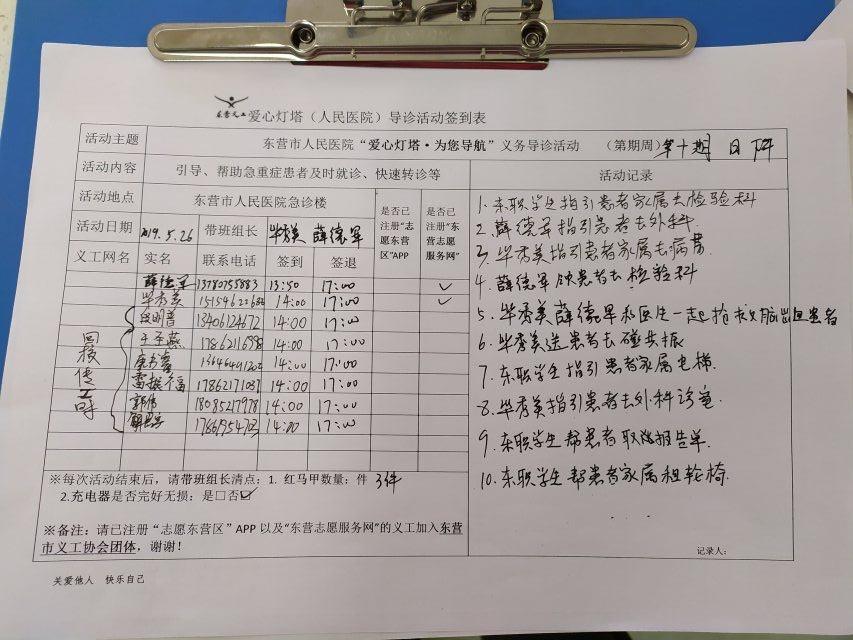 东营义工 爱心灯塔（人民医院）导诊活动签到表
活动主题 东营市人民医院“爱心灯塔·为您导航”义务导诊活动 （第期周）第十期 日 下午
活动内容 引导、帮助急重症患者及时就诊、快速转诊等 活动记录
活动地点 东营市人民医院急诊楼 是否已注册“志愿东营区”APP 是否已注册“东营志愿服务网”
活动日期 2019.5.26 带班组长 毕秀美 薛德军
义工网名 实名 联系电话 签到 签退
薛德军 13780755883 13:50 17:00 ✓
毕秀美 14:00 17:00 ✓
13406124672 14:00 17:00
于冬燕 1786211698 14:00 17:00
14:00 17:00
17862171037 14:00 17:00
郭伟 18085217978 14:00 17:00
14:00 17:00
回校传工时
1. 东职学生指引患者家属去检验科
2. 薛德军指引患者去外科.
3. 毕秀美指引患者家属去病房
4. 薛德军领患者去检验科
5. 毕秀美薛德军和医生一起抢救脑出血患者
6. 毕秀美送患者去磁共振
7. 东职学生指引患者家属电梯.
8. 毕秀美指引患者去外科诊室
9. 东职学生帮患者取化验报告单.
10. 东职学生帮患者家属租轮椅.
※每次活动结束后，请带班组长清点：1. 红马甲数量：件 3件
2.充电器是否完好无损：是□否☑
※备注：请已注册“志愿东营区”APP 以及“东营志愿服务网”的义工加入东营
市义工协会团体，谢谢！
记录人：
关爱他人 快乐自己